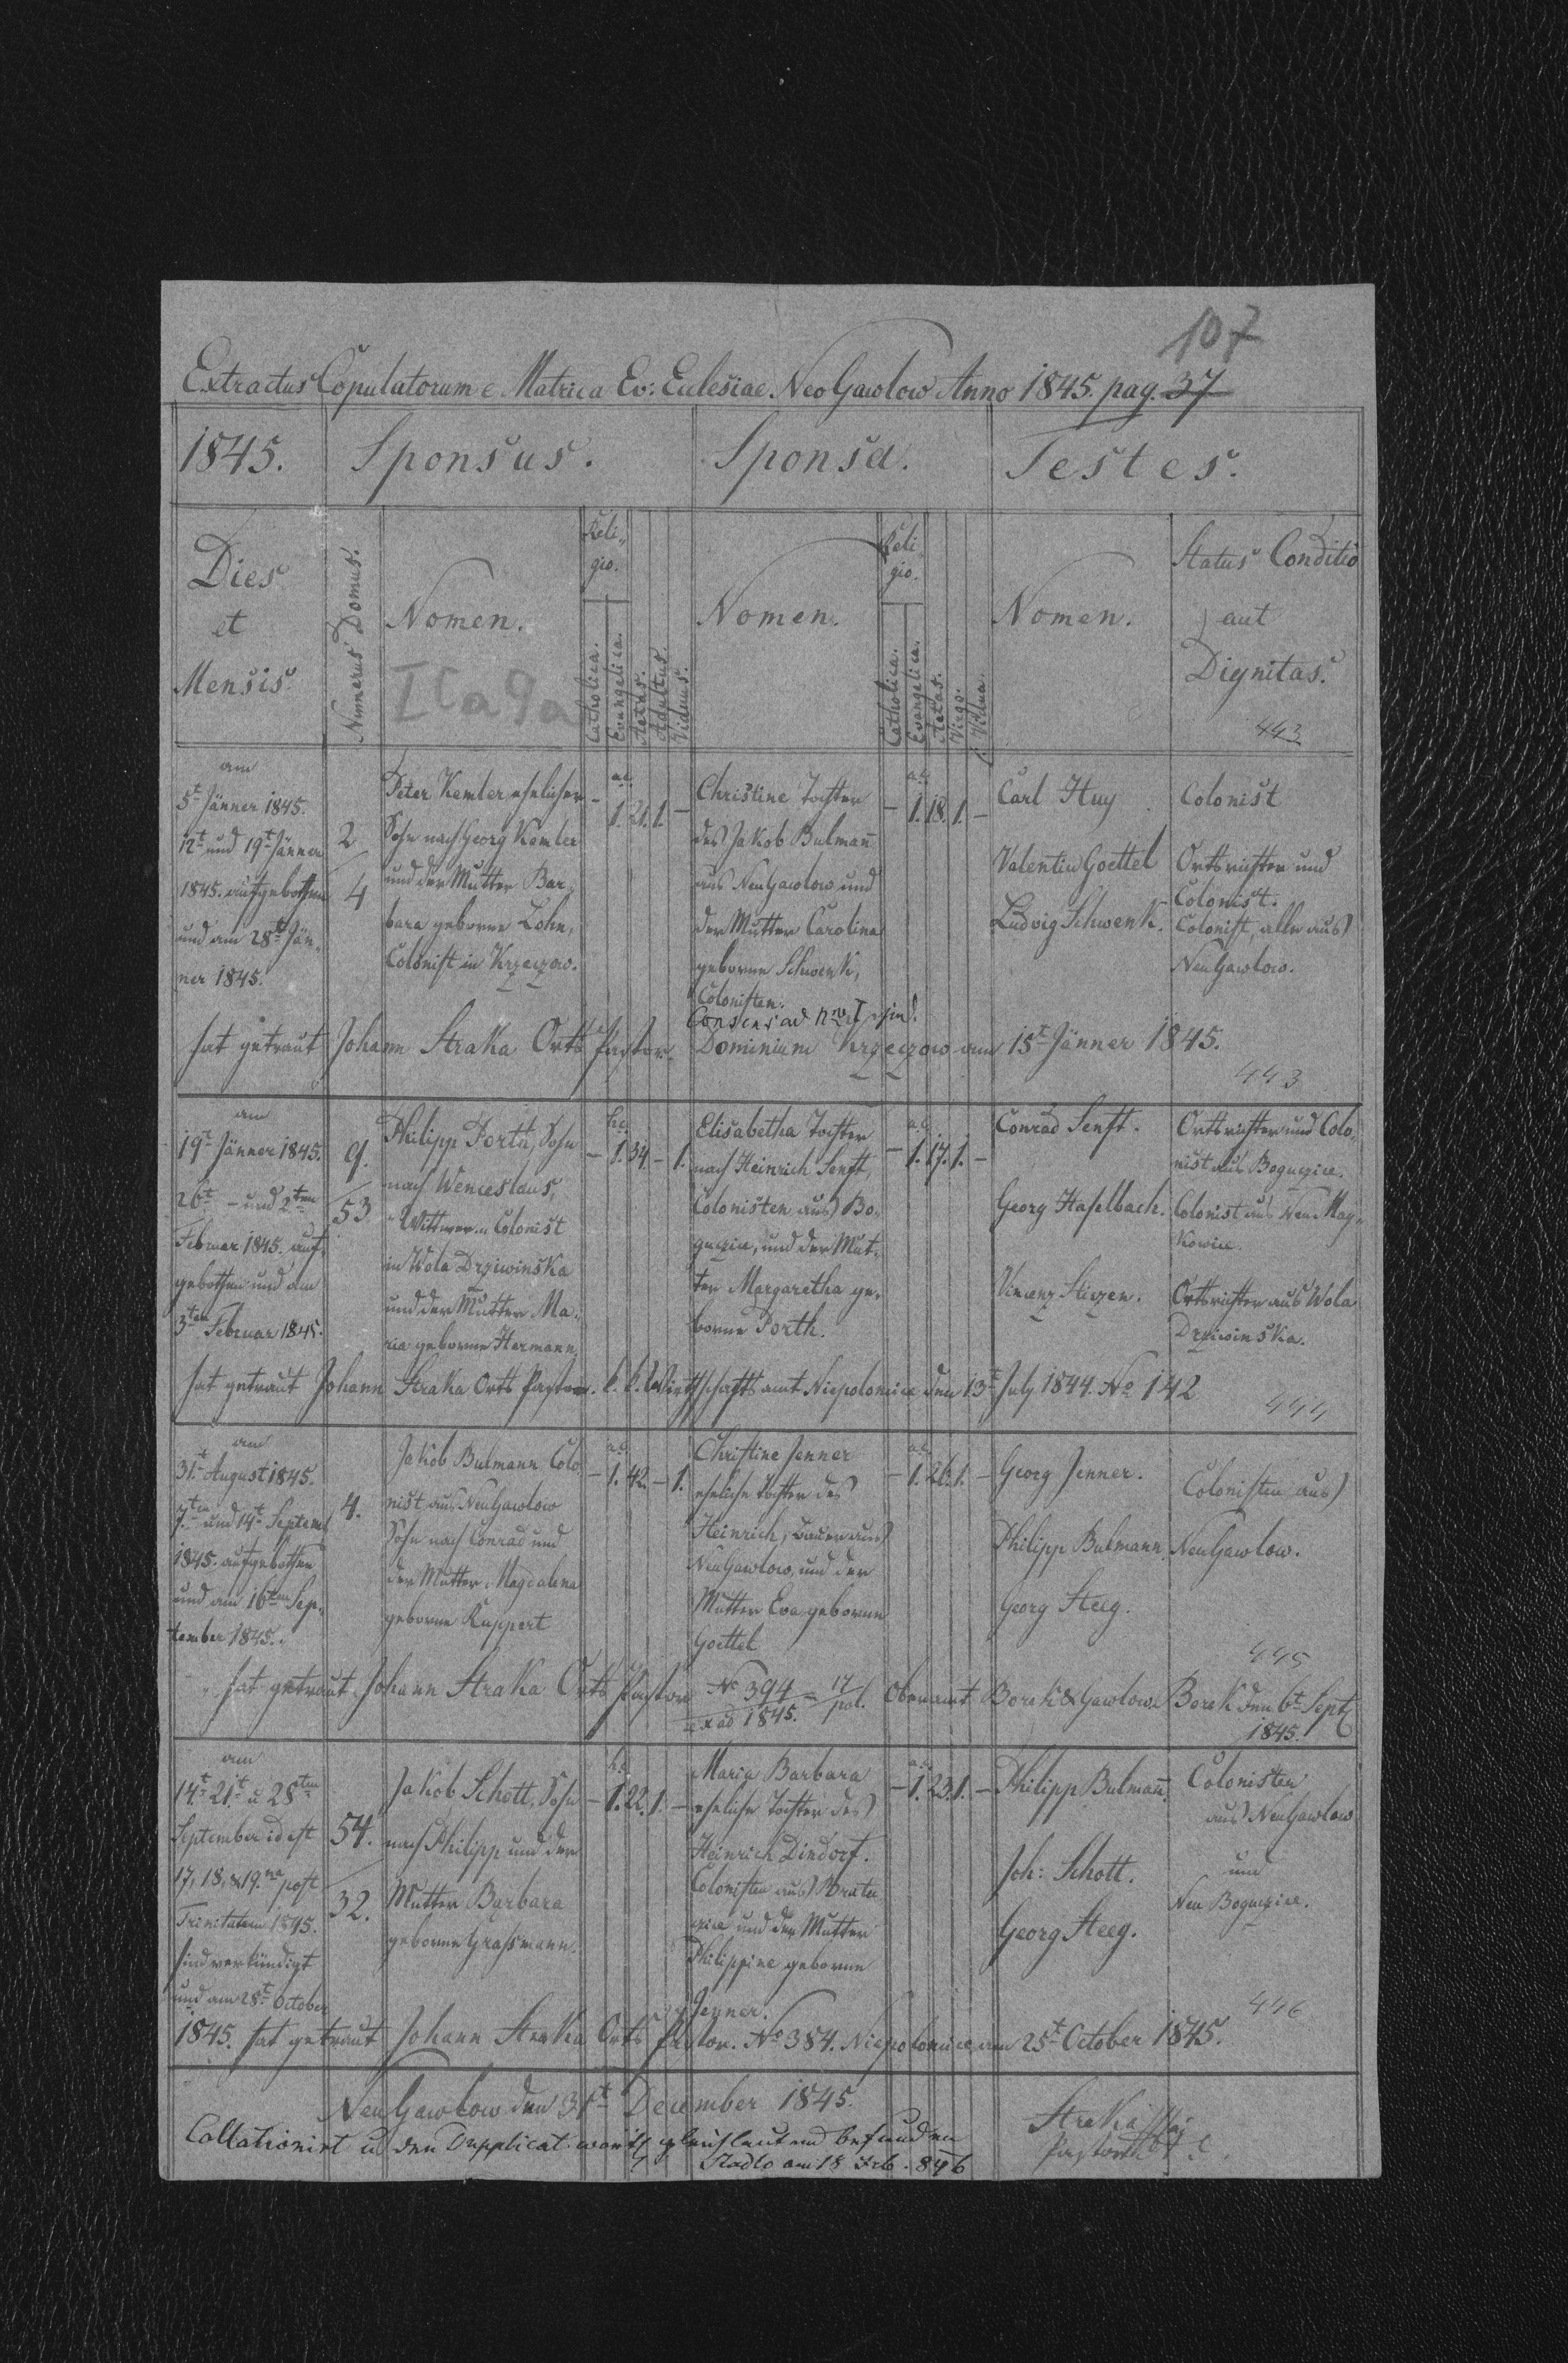 107
Extractus Copulatorum e Matrica Ev: Eclesiae NeoGawlow Anno 1845. pag. 37
1845. Sponsus. Sponsa. Testes.
Dies
et
Mensis.
Numerus Domus.
Nomen.
ICa9a
Reli-
gio.
Catholica.
Evangelica.
Aetas.
Adultus.
Viduus.
Nomen.
Reli-
gio.
Catholica.
Evangelica.
Aetas.
Virgo.
Vidua.
Nomen.
Status Conditio
aut
Dignitas.
443
am
5t Jänner 1845.
12t und 19t Jänner
1845. aufgebothen
und am 28t Jän-
ner 1845.
2
4
Peter Kemler ehelicher
Sohn nach Georg Kemler
und der Mutter Bar-
bara geborne Lohn,
Colonist in Krzeczow.
a.c.
- 1. 21. 1. -
Christine Tochter
des Jakob Bulmañ
aus NeuGawlow und
der Mutter Carolina
geborne Schwenk,
Colonisten.
a.c.
- 1. 18. 1. -
Carl Huy
Valentin Goettel
Ludvig Schwenk.
Colonist
Ortsrichter und
Colonist.
Colonist, alle aus
NeuGawlow.
Consens ad
hat getraut Johann Straka Orts Pastor. Dominium Krzeczow am 15t Jänner 1845.
443
am
19t Jänner 1845.
26t - und 2ten
Februar 1845. auf-
gebothen und am
3ten Februar 1845.
9.
53
Philipp Porth, Sohn
nach Wenceslaus,
Wittwer u Colonist
in Wola Drziwinska
und der Mutter Ma-
ria geborne Hermann.
h.c.
- 1. 34. - 1.
Elisabetha Tochter
nach Heinrich Senft,
Colonisten aus Bo-
guczice, und der Mut-
ter Margaretha ge-
borne Porth.
a.c.
- 1. 17. 1. -
Conrad Senft.
Georg Haselbach.
Vincenz Sticzen.
Ortsrichter und Colo-
nist aus Boguczice.
Colonist aus Neu May-
kowice.
Ortsrichter aus Wola
Drziwinska.
hat getraut Johann Straka Orts Pastor. k. k. Wirthschaftsamt Niepolomice den 13t July 1844. No 142
444
am
31t August 1845.
7ten und 14t Septemb
1845. aufgebothen
und am 16ten Sep-
tember 1845.
4.
Jakob Bulmann Colo-
nist aus NeuGawlow
Sohn nach Conrad und
der Mutter Magdalena
geborne Ruppert
a.c.
- 1. 42. - 1.
Christine Jenner
eheliche Tochter des
Heinrich, Bauer aus
NeuGawlow, und der
Mutter Eva geborne
Goettel
a.c.
- 1. 26. 1. -
Georg Jenner.
Philipp Bulmann.
Georg Steeg.
Colonisten aus
NeuGawlow.
445
hat getraut Johann Straka Orts Pastor No 394 17/pol. Oberamt Borek & Gawlow. Borek den 6t Sept
ex ad 1845. 1845.
am
14t 21t u 28ten
September id est
17, 18, & 19na post
Trinitatem 1845.
sind verkündigt
und am 28t October
54.
32.
Jakob Schott, Sohn
nach Philipp und der
Mutter Barbara
geborne Grassmann.
h.c.
- 1. 22. 1. -
Maria Barbara
eheliche Tochter des
Heinrich Dindorf.
Colonisten aus Bratu-
czice und der Mutter
Philippine geborne
Jenner.
a.c.
- 1. 23. 1. -
Philipp Bulmañ.
Joh: Schott.
Georg Steeg.
Colonisten
aus NeuGawlow
und
Neu Boguczice.
446
1845. hat getraut Johann Straka Orts Pastor. No 384. Niepolomice am 25t October 1845.
NeuGawlow den 31t December 1845.
Collationirt u den Dupplicat wörtl gleichlautend befunden
Stadlo am 18 Feb. 846
Straka
Pastor